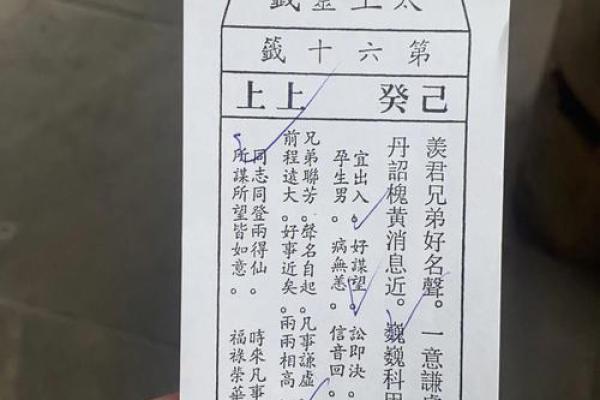 第六十籤
己癸 上上
羨君兄弟好名聲。一意謙
丹詔槐黃消息近。巍巍科
宜出入。好謀望。訟即決。
孕生男。病無恙。信音回。
兄弟聯芳。聲名自起。凡事謙虛
前程遠大。好事近矣。兩兩相高
同志同登兩得仙。時來凡事
所謀所望皆如意。福祿榮華